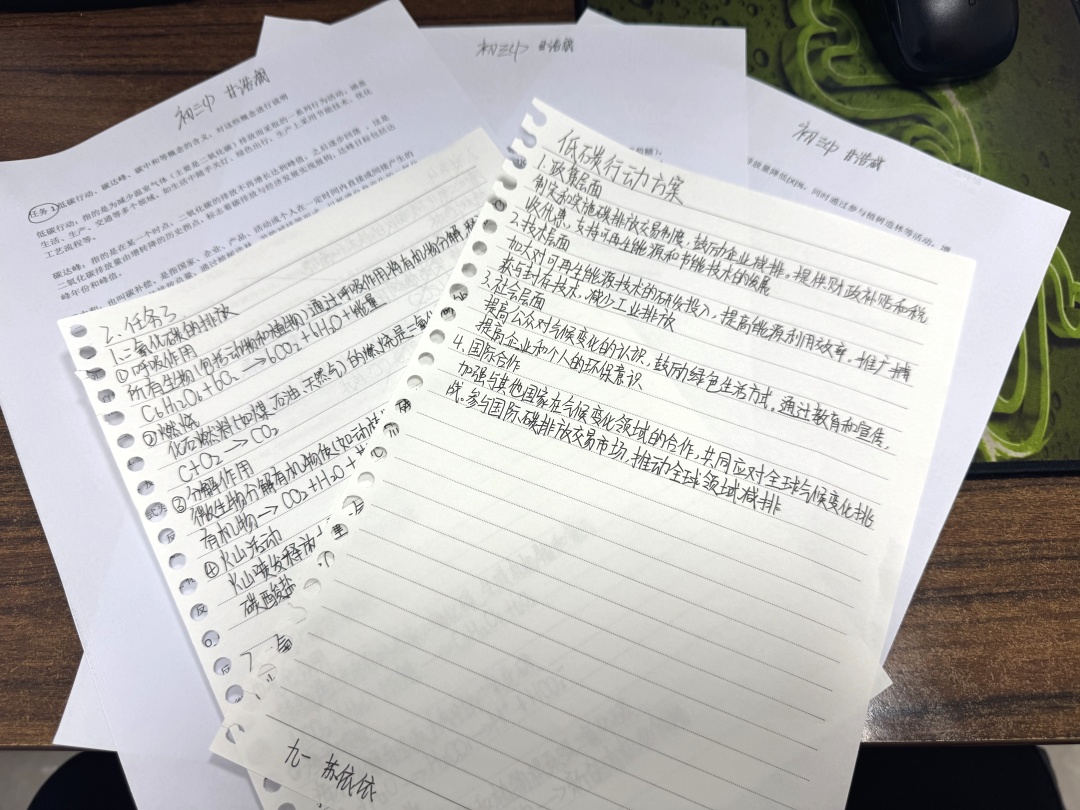 初三中 甘浩瀚
任务1 低碳行动、碳达峰、碳中和等概念的含义，对这些概念进行说明
低碳行动：指的是为减少温室气体（主要是二氧化碳）排放而采取的一系列行为活动，涵盖
生活、生产、交通等多个领域，如生活中随手关灯、绿色出行，生产上采用节能技术、优化
工艺流程等。
碳达峰：指的是在某一个时点，二氧化碳的排放不再增长达到峰值，之后逐步回落，这是
二氧化碳排放量由增转降的历史拐点，标志着碳排放与经济发展实现脱钩，达峰目标包括达
峰年份和峰值。
也叫碳补偿，是指国家、企业、产品、活动或个人在一定时间内直接或间接产生的
初三中 甘浩瀚
初三中 甘浩瀚
排放量降低因素，同时通过参与植树造林等活动，增
2、任务3
1.二氧化碳的排放
①呼吸作用
所有生物(包括动物和植物)通过呼吸作用将有机物分解,释
C6H12O6+6O2→6CO2+6H2O+能量
②燃烧
化石燃料(如煤 石油 天然气)的燃烧是二氧化
C+O2→CO2
③分解作用
微生物分解有机物质(如动植
有机物→CO2+H2O+
④火山活动
火山喷发释放
碳酸盐
低碳行动方案
1.政策层面
制定和实施碳排放交易制度,鼓励企业减排。提供财政补贴和税
收优惠,支持可再生能源和节能技术的发展
2.技术层面
加大对可再生能源技术的研发投入,提高能源利用效率。推广捕
来与封存技术,减少工业排放
3.社会层面
提高公众对气候变化的认识,鼓励绿色生活方式。通过教育和宣传,
提高企业和个人的环保意识
4.国际合作
加强与其他国家在气候变化领域的合作,共同应对全球气候变化挑
战。参与国际碳排放交易市场,推动全球领域减排
九一 苏依依